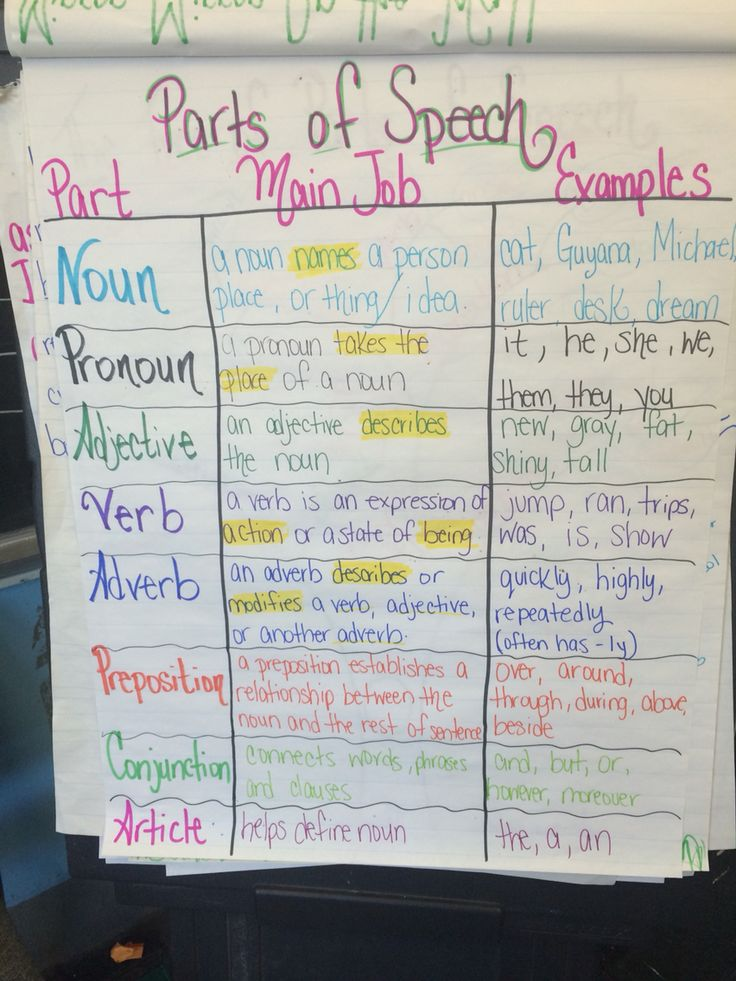 Parts of Speech
Part
Main Job
Examples
Noun
a noun names a person
place, or thing/idea.
cat, Guyana, Michael,
ruler, desk, dream
Pronoun
a pronoun takes the
place of a noun
it, he, she, we,
them, they, you
Adjective
an adjective describes
the noun
new, gray, fat,
shiny, tall
Verb
a verb is an expression of
action or a state of being.
jump, ran, trips,
was, is, show
Adverb
an adverb describes or
modifies a verb, adjective,
or another adverb.
quickly, highly,
repeatedly
(often has -ly)
Preposition
a preposition establishes a
relationship between the
noun and the rest of sentence
over, around,
through, during, above,
beside
Conjunction
connects words, phrases
and clauses
and, but, or,
however, moreover
Article
helps define noun
the, a, an